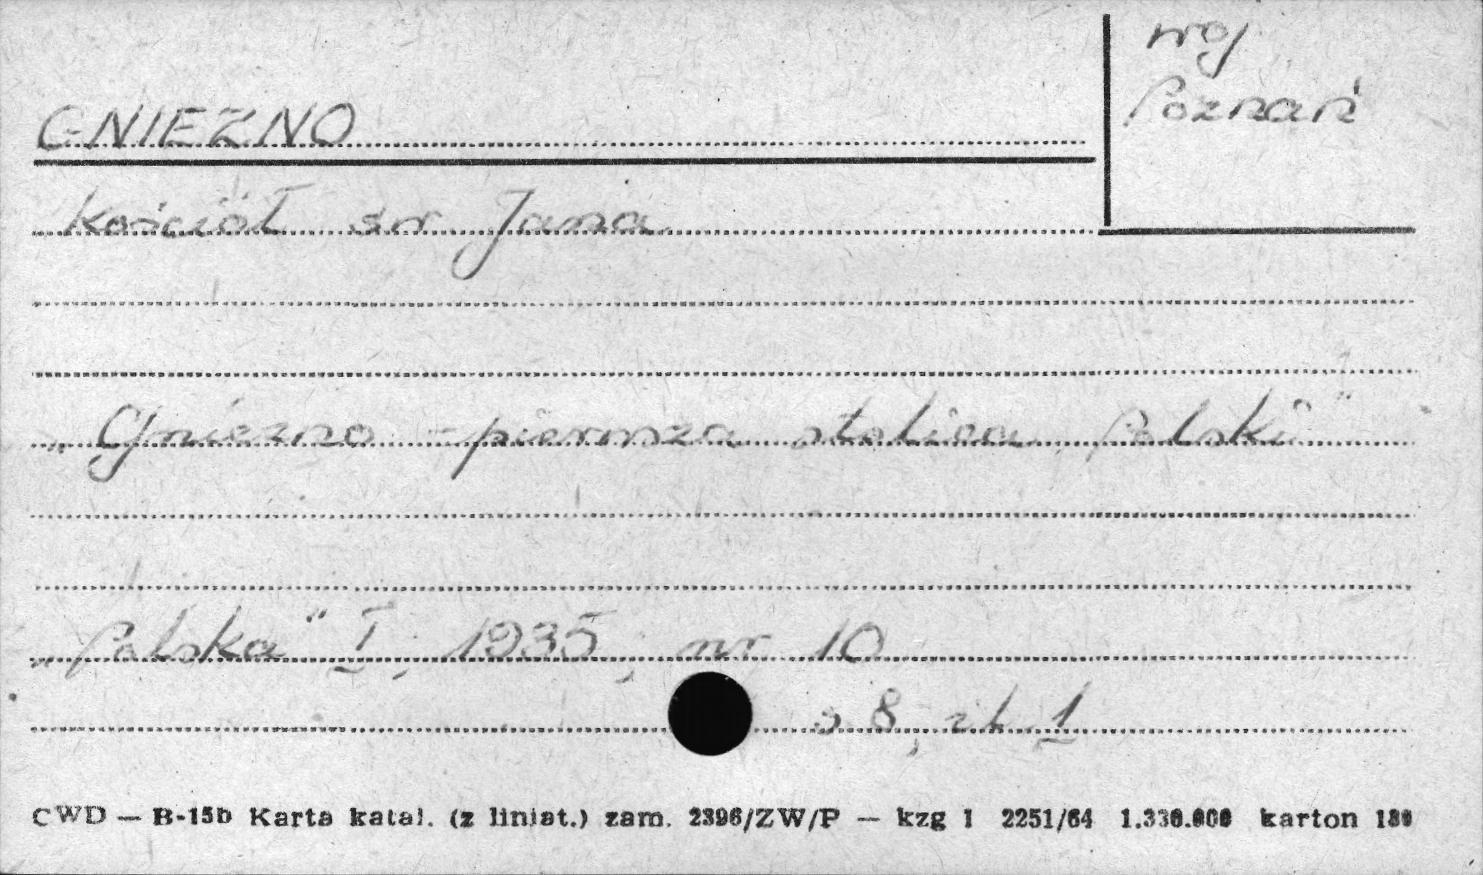 woj
Poznań
GNIEZNO
Kościół św Jana
„Gniezno - pierwsza stolica Polski"
„Polska" I, 1935, nr 10
s 8, il. 1
CWD — B-15b Karta katal. (z liniat.) zam. 2396/ZW/P — kzg 1 2251/64 1.330.000 karton 180